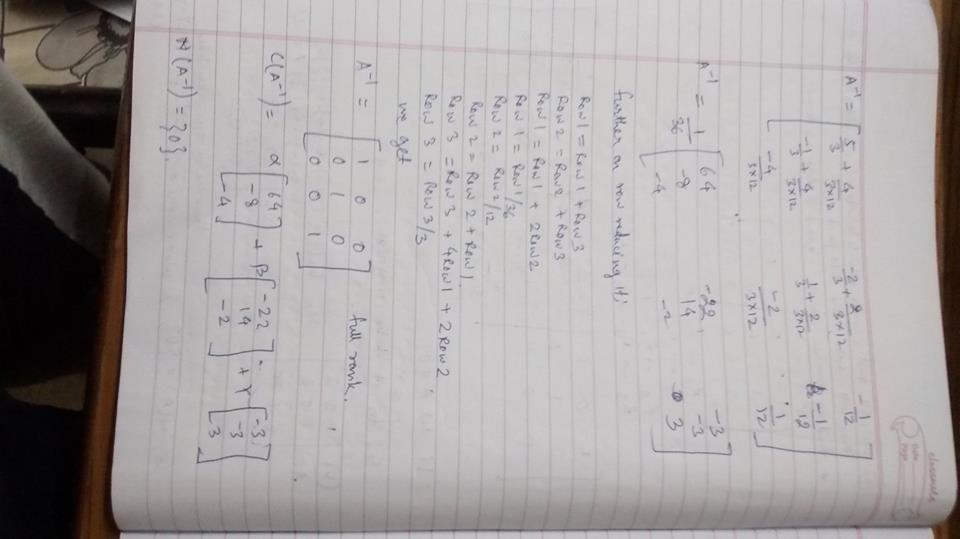 classmate
Date
Page
A⁻¹ = [ 5/3 + 4/(3×12)   -2/3 + 2/(3×12)   -1/12
-1/3 + 4/(3×12)   1/3 + 2/(3×12)   -1/12
-4/(3×12)   -2/(3×12)   1/12 ]
A⁻¹ = 1/36 [ 64   -22   -3
-8   14   -3
-4   -2   3 ]
further on row reducing it;
Row 1 = Row 1 + Row 3
Row 2 = Row 2 + Row 3
Row 1 = Row 1 + 2 Row 2
Row 1 = Row 1/36
Row 2 = Row 2/12
Row 2 = Row 2 + Row 1.
Row 3 = Row 3 + 4 Row 1 + 2 Row 2
Row 3 = Row 3/3
we get
A⁻¹ = [ 1   0   0
0   1   0
0   0   1 ] full rank.
C(A⁻¹) = α [ 64   -8   -4 ] + β [ -22   14   -2 ] + γ [ -3   -3   3 ]
N(A⁻¹) = {0}.